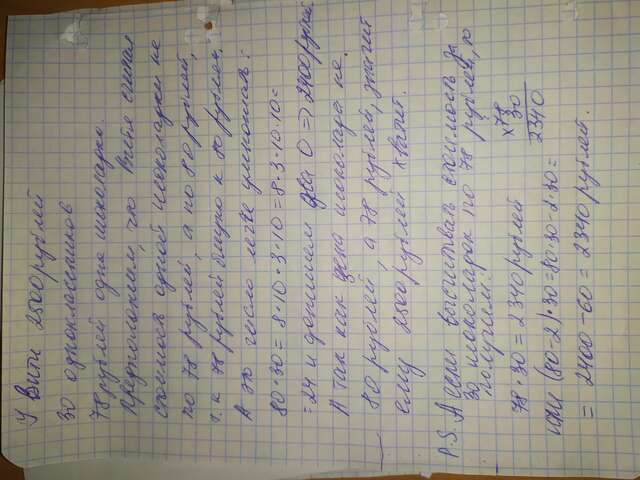 У Вити 2500 рублей
30 одноклассников
78 рублей одна шоколадка.
Предположим, что Витя считал
стоимость одной шоколадки не
по 78 рублей, а по 80 рублей,
т. к 78 рублей близко к 80 рублям.
А это число легче умножать:
80·30=8·10·3·10=8·3·10·10=
=24 и допишем два 0 => 2400 рублей
А так как цена шоколада не
80 рублей, а 78 рублей, значит
ему 2500 рублей хватит.
P.S. А если высчитывать стоимость за
30 шоколадок по 78 рублей, то
получим:
78·30=2340 рублей
х78
30
2340
или (80-2)·30=80·30-2·30=
= 2400-60 = 2340 рублей.